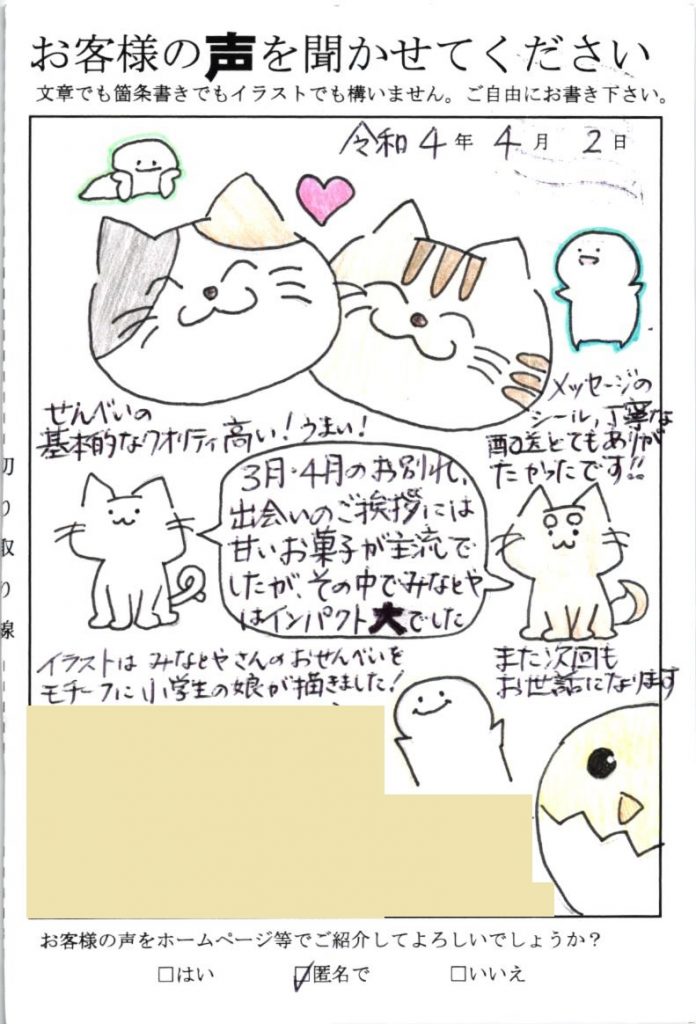 お客様の声を聞かせてください
文章でも箇条書きでもイラストでも構いません。ご自由にお書き下さい。
令和4年4月2日
せんべいの
基本的なクオリティ高い！うまい！
メッセージの
シール、丁寧な
配送とてもありが
たかったです!!
3月・4月のお別れ、
出会いのご挨拶には
甘いお菓子が主流で
したが、その中でみなとや
はインパクト大でした
イラストは みなとやさんのおせんべいを
モチーフに小学生の娘が描きました！
また次回も
お世話になります
切り取り線
お客様の声をホームページ等でご紹介してよろしいでしょうか？
□はい ☑匿名で □いいえ